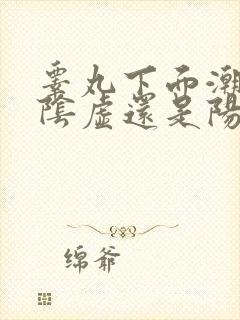 睪丸下面潮
陰虛還是陽
绵爷